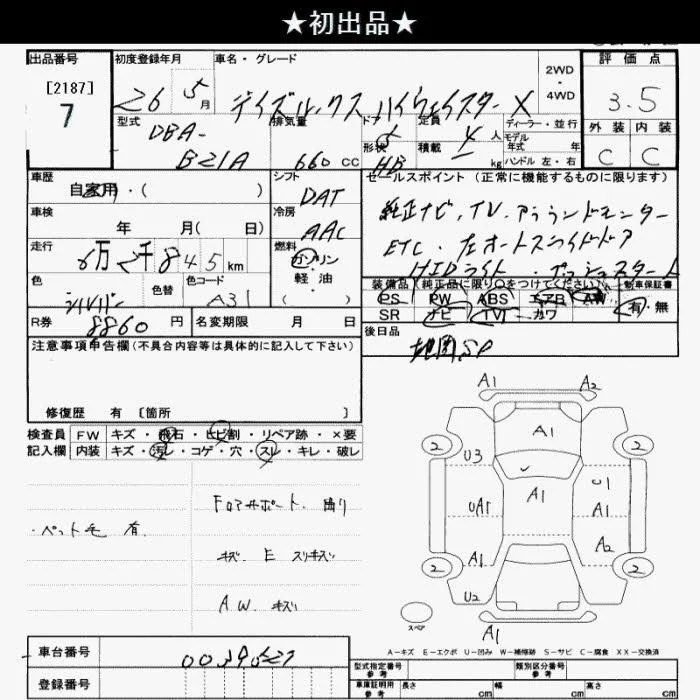 ★初出品★
出品番号 初度登録年月 車名・グレード 2WD・4WD 評価点
[2187]
7
26 5月 デイズルックス ハイウェイスターX 3.5
型式 排気量 ドア 定員 ディーラー・並行 外装 内装
DBA-
B21A 660 cc 5 4人 モデル年式 年 C C
形状 HB 積載 kg ハンドル 左・右
車歴 シフト セールスポイント (正常に機能するものに限ります)
自家用・( ) DAT
車検 冷房 純正ナビ、TV、アラウンドモニター
年 月( 日) AAC
走行 燃料 ETC・左オートスライドドア
万 千845km ガソリン HIDライト・プッシュスタート
色 色替 色コード 軽油 装備品(純正品に限り○をつけてください) 新車保証書
シルバー A31 ( ) PS PW ABS エアB AW 有・無
SR ナビ TV カワ
R券 8860円 名変期限 月 日 後日品
地図, SP
注意事項申告欄(不具合内容等は具体的に記入して下さい)
修復歴 有 [箇所 ]
検査員 FW キズ・飛石・ヒビ割・リペア跡・×要
記入欄 内装 キズ・汚レ・コゲ・穴・スレ・キレ・破レ
Fロアサポート 曲り
・ペット毛 有
キズ E スリキズ
A.W. キズ
A1 A2
A1
2 U3 2
UA1 A1 U1
A1
A1 A2
2 2
U2
スペア A1
A-キズ E-エクボ U-凹み W-補修跡 S-サビ C-腐食 XX-交換済
車台番号
登録番号
型式指定番号 参考 類別区分番号 参考
車庫証明用 参考 長さ cm 幅 cm 高さ cm